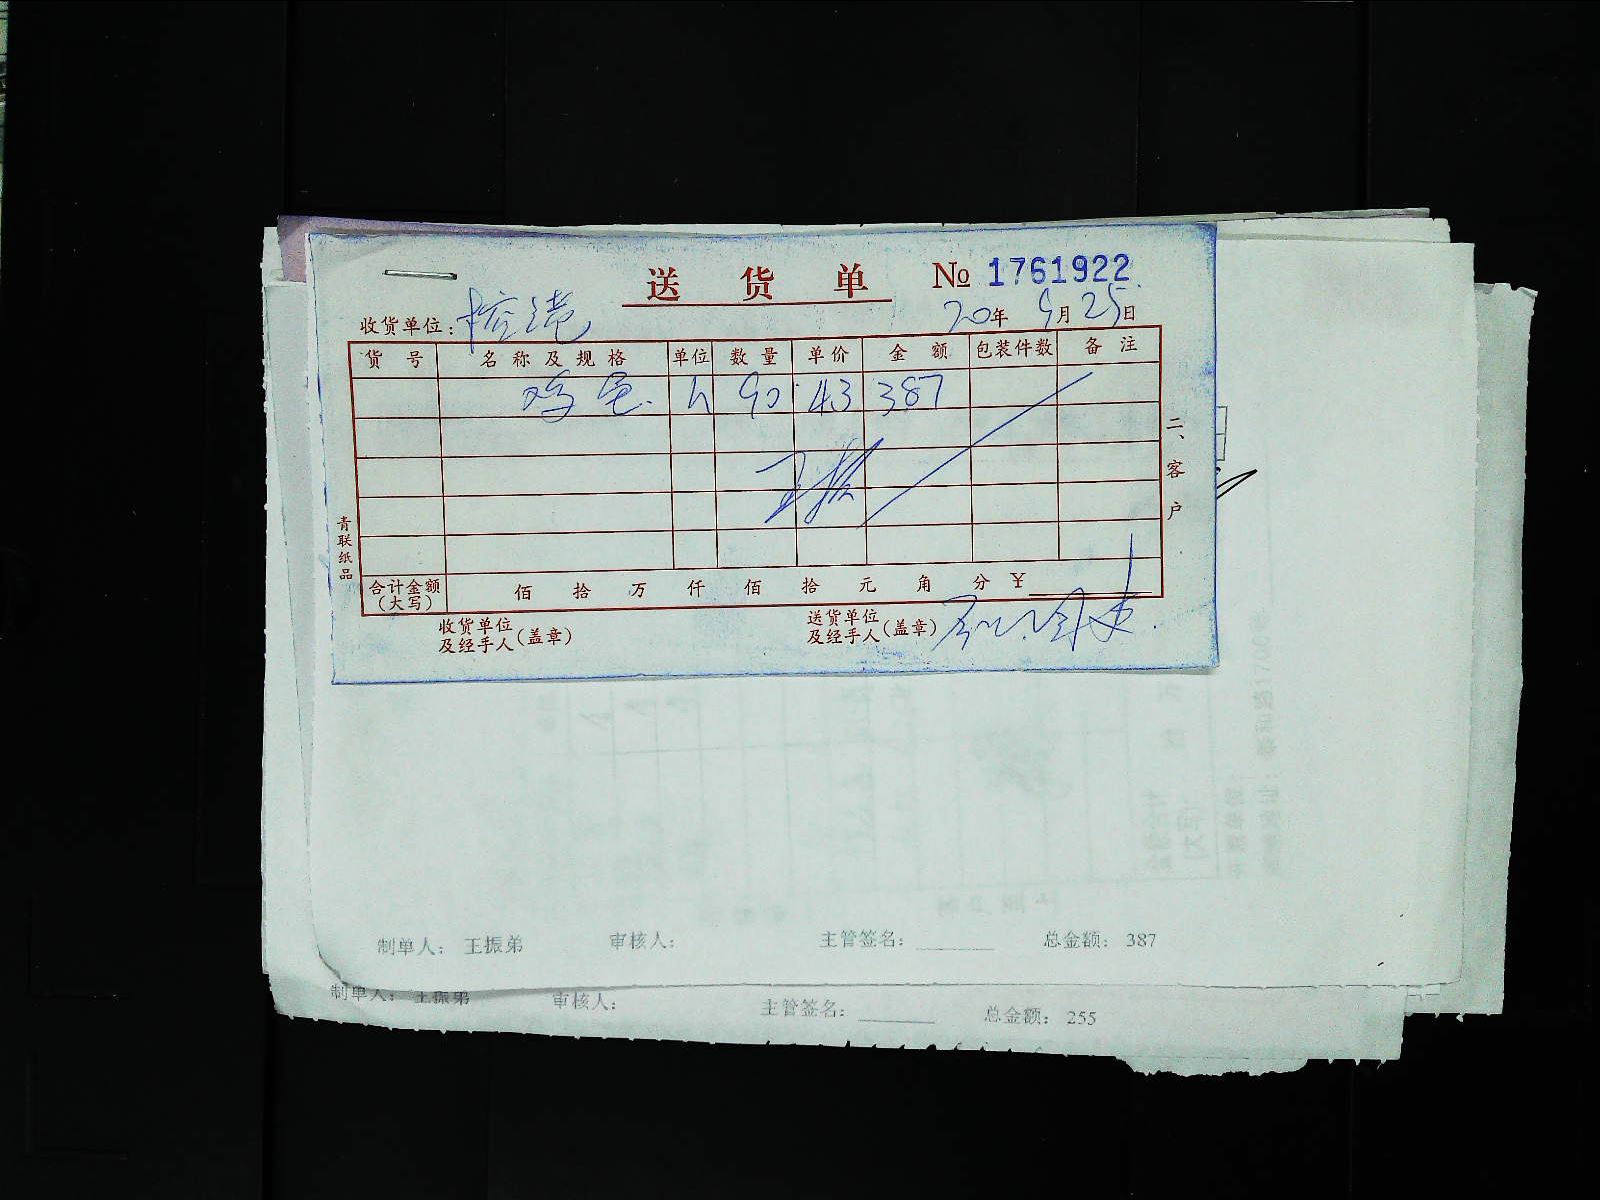 送 货 单 № 1761922
收货单位: 20年 9月 25日
货 号 名 称 及 规 格 单位 数 量 单价 金 额 包装件数 备 注
90 43 387
二、客户
青联纸品
合计金额(大写) 佰 拾 万 仟 佰 拾 元 角 分 ¥
收货单位及经手人(盖章) 送货单位及经手人(盖章)
制单人: 王振弟 审核人: 主管签名: 总金额: 387
制单人: 王振弟 审核人: 主管签名: 总金额: 255